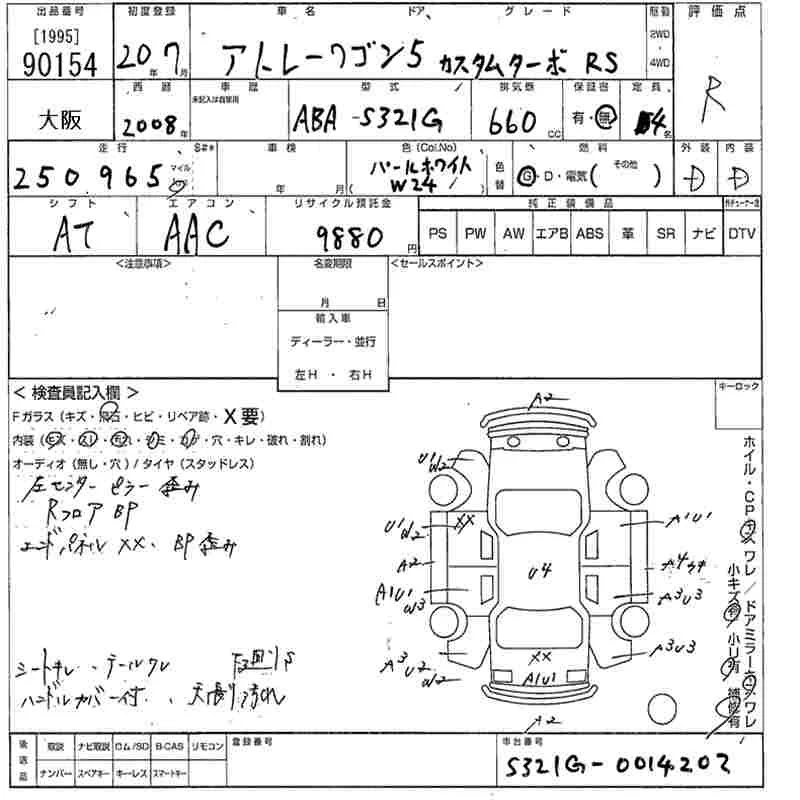 出品番号 初度登録 車名 ドア グレード 駆動 評価点
[1995] 90154 20年 7月 アトレーワゴン 5 カスタムターボ RS 2WD 4WD R
大阪 西暦 車歴 型式 排気量 保証書 定員
2008年 未記入は自家用 ABA-S321G 660cc 有・無 4名
走行 S#* 車検 色(Col.No) 色替 燃料 外装 内装
250965 マイル 年 月 パールホワイト W24 G・D・電気( その他 ) D D
シフト エアコン リサイクル預託金 純正装備品
AT AAC 9880円 PS PW AW エアB ABS 革 SR ナビ DTV
<注意事項> 名変期限 <セールスポイント>
月 日
輸入車
ディーラー・並行
左H・右H
<検査員記入欄> キーロック
Fガラス(キズ・飛石・ヒビ・リペア跡・X要)
内装(キズ・スレ・汚れ・シミ・コゲ・穴・キレ・破れ・割れ)
オーディオ(無し・穴)/タイヤ(スタッドレス)
左センターピラー歪み
Rフロア BP
エンドパネル XX、BP歪み
シートキレ、テールワレ 下回りS
ハンドルカバー付、天張り汚れ
A2
U1 W2
XX
U1 W2
A1U1
A2
U4
A4
A1U1 W3
A3U3
XX
A3U2 W2
A3U3
A1U1
A2
ホイル・CPキズ ワレ/ドアミラーキズ ワレ
小キズ有 小凹有 補修有
後送品 取説 ナビ取説 ロム/SD B-CAS リモコン 登録番号 車台番号
ナンバー スペアキー キーレス スマートキー S321G-0014202